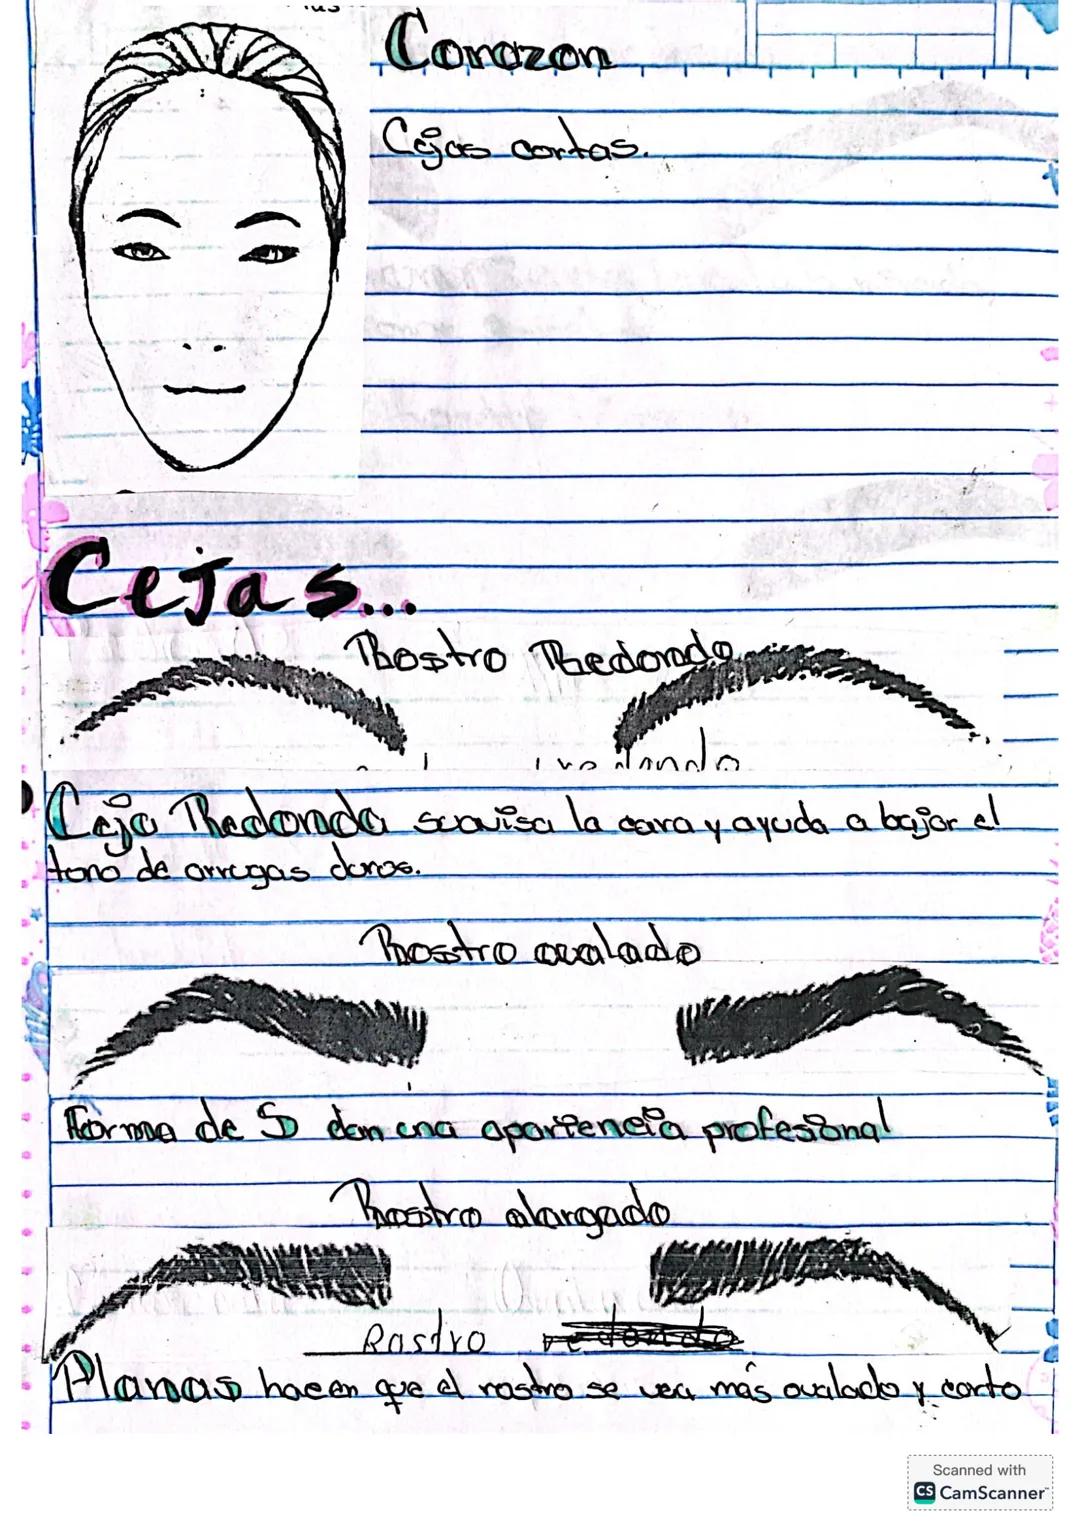 Corazon
Cejas cortas.
Cejas...
Rostro Redondo
Ceja Redonda suavisa la cara y ayuda a bajar el
tono de arrugas duras.
Rostro ovalado
Forma de S dan una apariencia profesional
Rostro alargado
Rostro redondo
Planas hacen que el rostro se vea más ovalado y corto
Scanned with
CS CamScanner